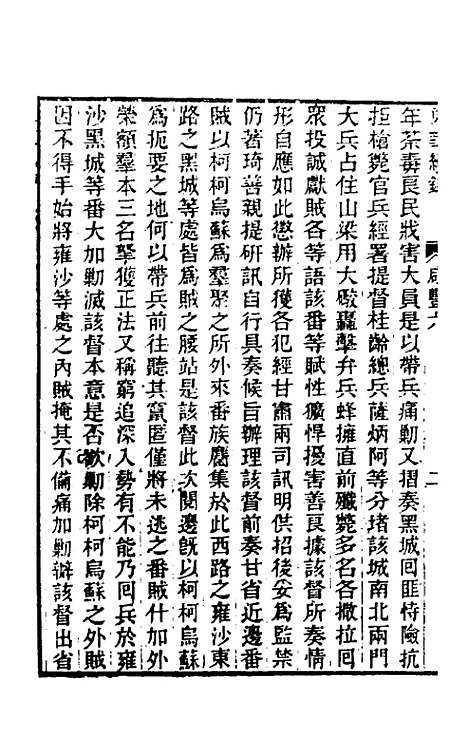 年荼毒良民戕害大員是以帶兵痛勦又摺奏黑城回匪恃險抗
拒槍斃官兵經署提督桂齡總兵薩炳阿等分堵該城南北兩門
大兵占住山梁用大礮轟擊弁兵蜂擁直前殲斃多名各撒拉回
衆投誠獻賊各等語該番等賦性獷悍擾害善良據該督所奏情
形自應如此懲辦所獲各犯經甘肅兩司訊明供招後妥爲監禁
仍著琦善親提研訊自行具奏候旨辦理該督前奏甘省近邊番
賊以柯柯烏蘇爲羣聚之所外來番族麕集於此西路之雍沙東
路之黑城等處皆爲賊之腰站是該督此次閱邊旣以柯柯烏蘇
爲扼要之地何以帶兵前往聽其竄匿僅將未逃之番賊什加外
榮額羣本三名拏獲正法又稱窮追深入勢有不能乃回兵於雍
沙黑城等番大加勦滅該督本意是否欲勦除柯柯烏蘇之外賊
因不得手始將雍沙等處之內賊掩其不備痛加勦辦該督出省
咸豐六
二